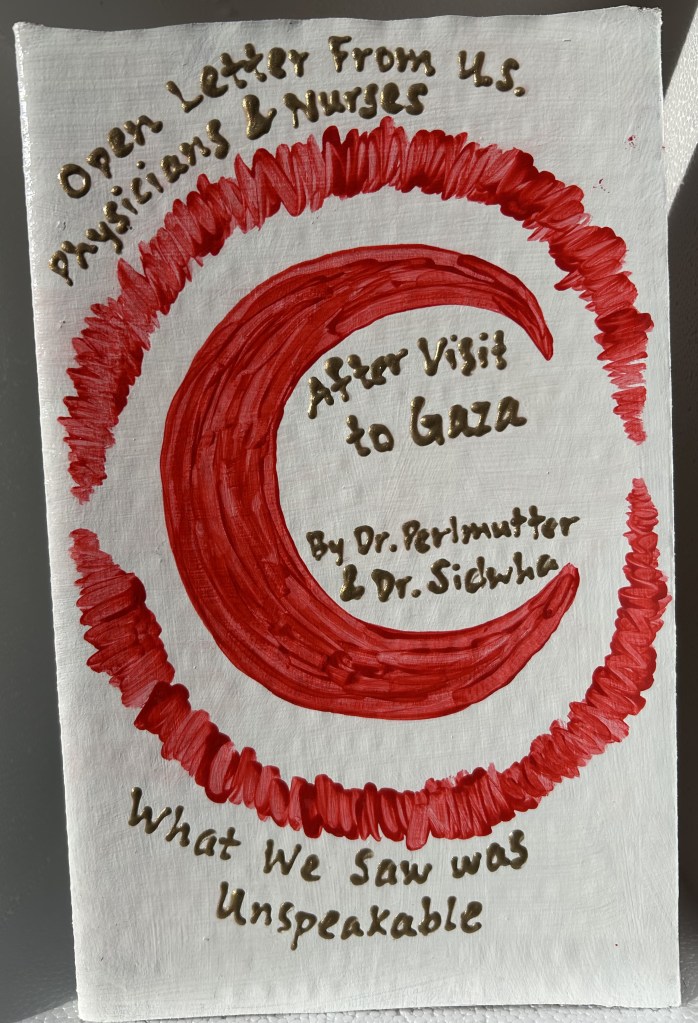 Open Letter From U.S.
Physicians & Nurses
After Visit
to Gaza
By Dr. Perlmutter
& Dr. Sidwha
What We Saw was
Unspeakable